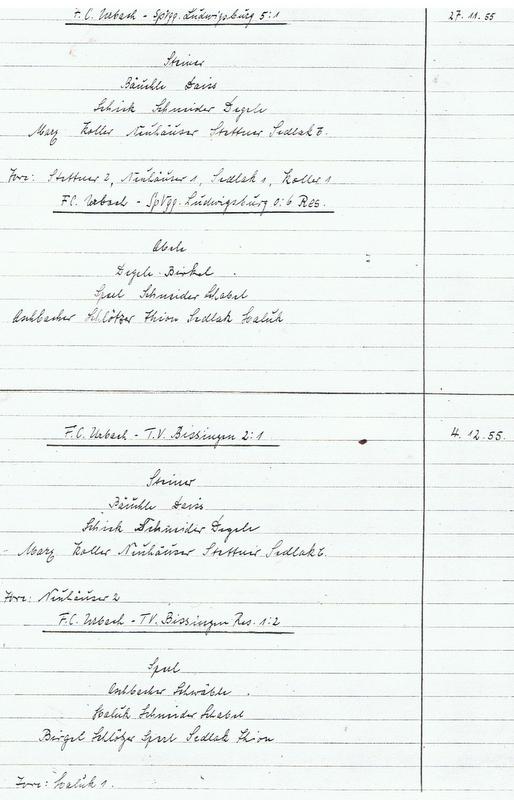 F.C. Urbach - SpVgg. Ludwigsburg 5:1 27.11.55
Steiner
Bäuchle Daiss
Schiek Schneider Degele
Marz Koller Neuhäuser Stettner Sedlak E.
Tore: Stettner 2, Neuhäuser 1, Sedlak 1, Koller 1
F.C. Urbach - SpVgg. Ludwigsburg 0:6 Res.
Abele
Degele Birkel
Speel Schneider Schabel
Aschbacher Schlötzer Thion Sedlak Haluk
F.C. Urbach - T.V. Bissingen 2:1 4.12.55.
Steiner
Bäuchle Daiss
Schiek Schneider Degele
Marz Koller Neuhäuser Stettner Sedlak E.
Tore: Neuhäuser 2
F.C. Urbach - T.V. Bissingen Res. 1:2
Speel
Aschbacher Schwäble
Haluk Schneider Schabel
Schlötzer Speel Sedlak Thion
Tore: Haluk 1.